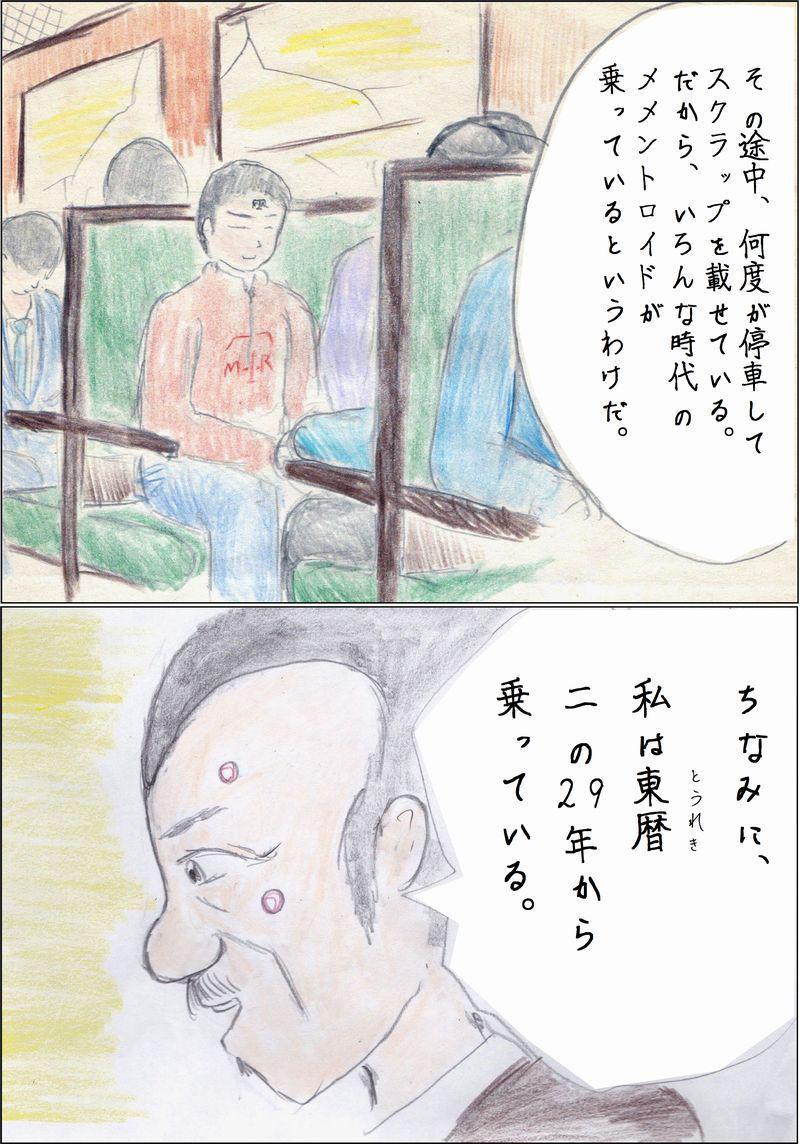 その途中、何度が停車して
スクラップを載せている。
だから、いろんな時代の
メメントロイドが
乗っているというわけだ。
M-I-R
ちなみに、
私は東暦
とうれき
二の29年から
乗っている。